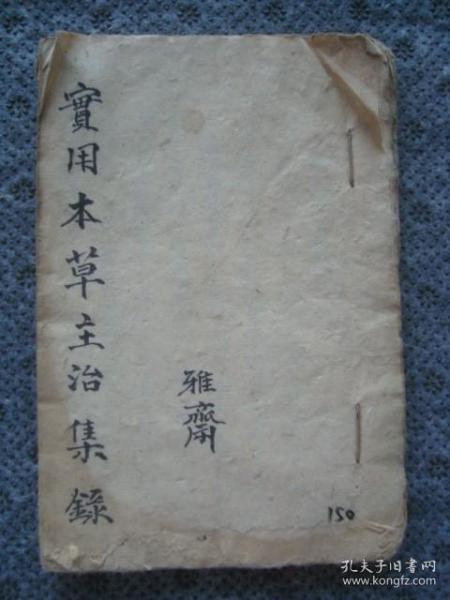 實用本草主治集錄
雅齋
150
孔夫子旧书网
www.kongfz.com